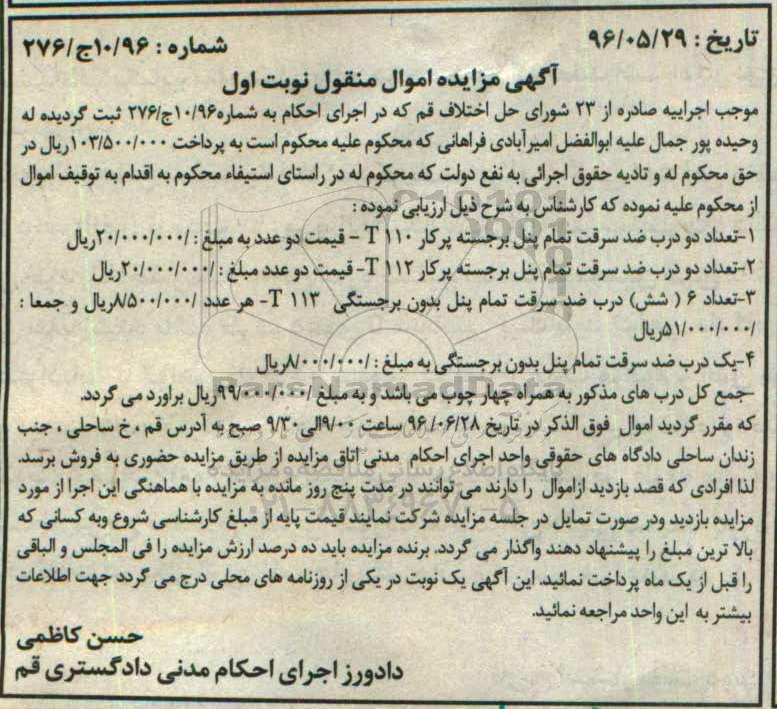 تاریخ : ۹۶/۰۵/۲۹
شماره : ۱۰/۹۶ج/۲۷۶
آگهی مزایده اموال منقول نوبت اول
موجب اجراییه صادره از ۲۳ شورای حل اختلاف قم که در اجرای احکام به شماره۱۰/۹۶ج/۲۷۶ ثبت گردیده له
وحیده پور جمال علیه ابوالفضل امیرآبادی فراهانی که محکوم علیه محکوم است به پرداخت ۱۰۳/۵۰۰/۰۰۰ریال در
حق محکوم له و تادیه حقوق اجرائی به نفع دولت که محکوم له در راستای استیفاء محکوم به اقدام به توقیف اموال
از محکوم علیه نموده که کارشناس به شرح ذیل ارزیابی نموده :
۱-تعداد دو درب ضد سرقت تمام پنل برجسته پرکار ۱۱۰ T - قیمت دو عدد به مبلغ : /۲۰/۰۰۰/۰۰۰ریال
۲-تعداد دو درب ضد سرقت تمام پنل برجسته پرکار ۱۱۲ T- قیمت دو عدد مبلغ : /۲۰/۰۰۰/۰۰۰ریال
۳-تعداد ۶ ( شش) درب ضد سرقت تمام پنل بدون برجستگی ۱۱۳ T- هر عدد /۸/۵۰۰/۰۰۰ریال و جمعا :
/۵۱/۰۰۰/۰۰۰ریال
۴-یک درب ضد سرقت تمام پنل بدون برجستگی به مبلغ : /۸/۰۰۰/۰۰۰ریال
-جمع کل درب های مذکور به همراه چهار چوب می باشد و به مبلغ /۹۹/۰۰۰/۰۰۰ریال براورد می گردد.
که مقرر گردید اموال فوق الذکر در تاریخ ۹۶/۰۶/۲۸ ساعت ۹/۰۰الی۹/۳۰ صبح به آدرس قم ، خ ساحلی ، جنب
زندان ساحلی دادگاه های حقوقی واحد اجرای احکام مدنی اتاق مزایده از طریق مزایده حضوری به فروش برسد.
لذا افرادی که قصد بازدید ازاموال را دارند می توانند در مدت پنج روز مانده به مزایده با هماهنگی این اجرا از مورد
مزایده بازدید ودر صورت تمایل در جلسه مزایده شرکت نمایند قیمت پایه از مبلغ کارشناسی شروع وبه کسانی که
بالا ترین مبلغ را پیشنهاد دهند واگذار می گردد. برنده مزایده باید ده درصد ارزش مزایده را فی المجلس و الباقی
را قبل از یک ماه پرداخت نمائید. این آگهی یک نوبت در یکی از روزنامه های محلی درج می گردد جهت اطلاعات
بیشتر به این واحد مراجعه نمائید.
حسن کاظمی
دادورز اجرای احکام مدنی دادگستری قم
ParsNamadData